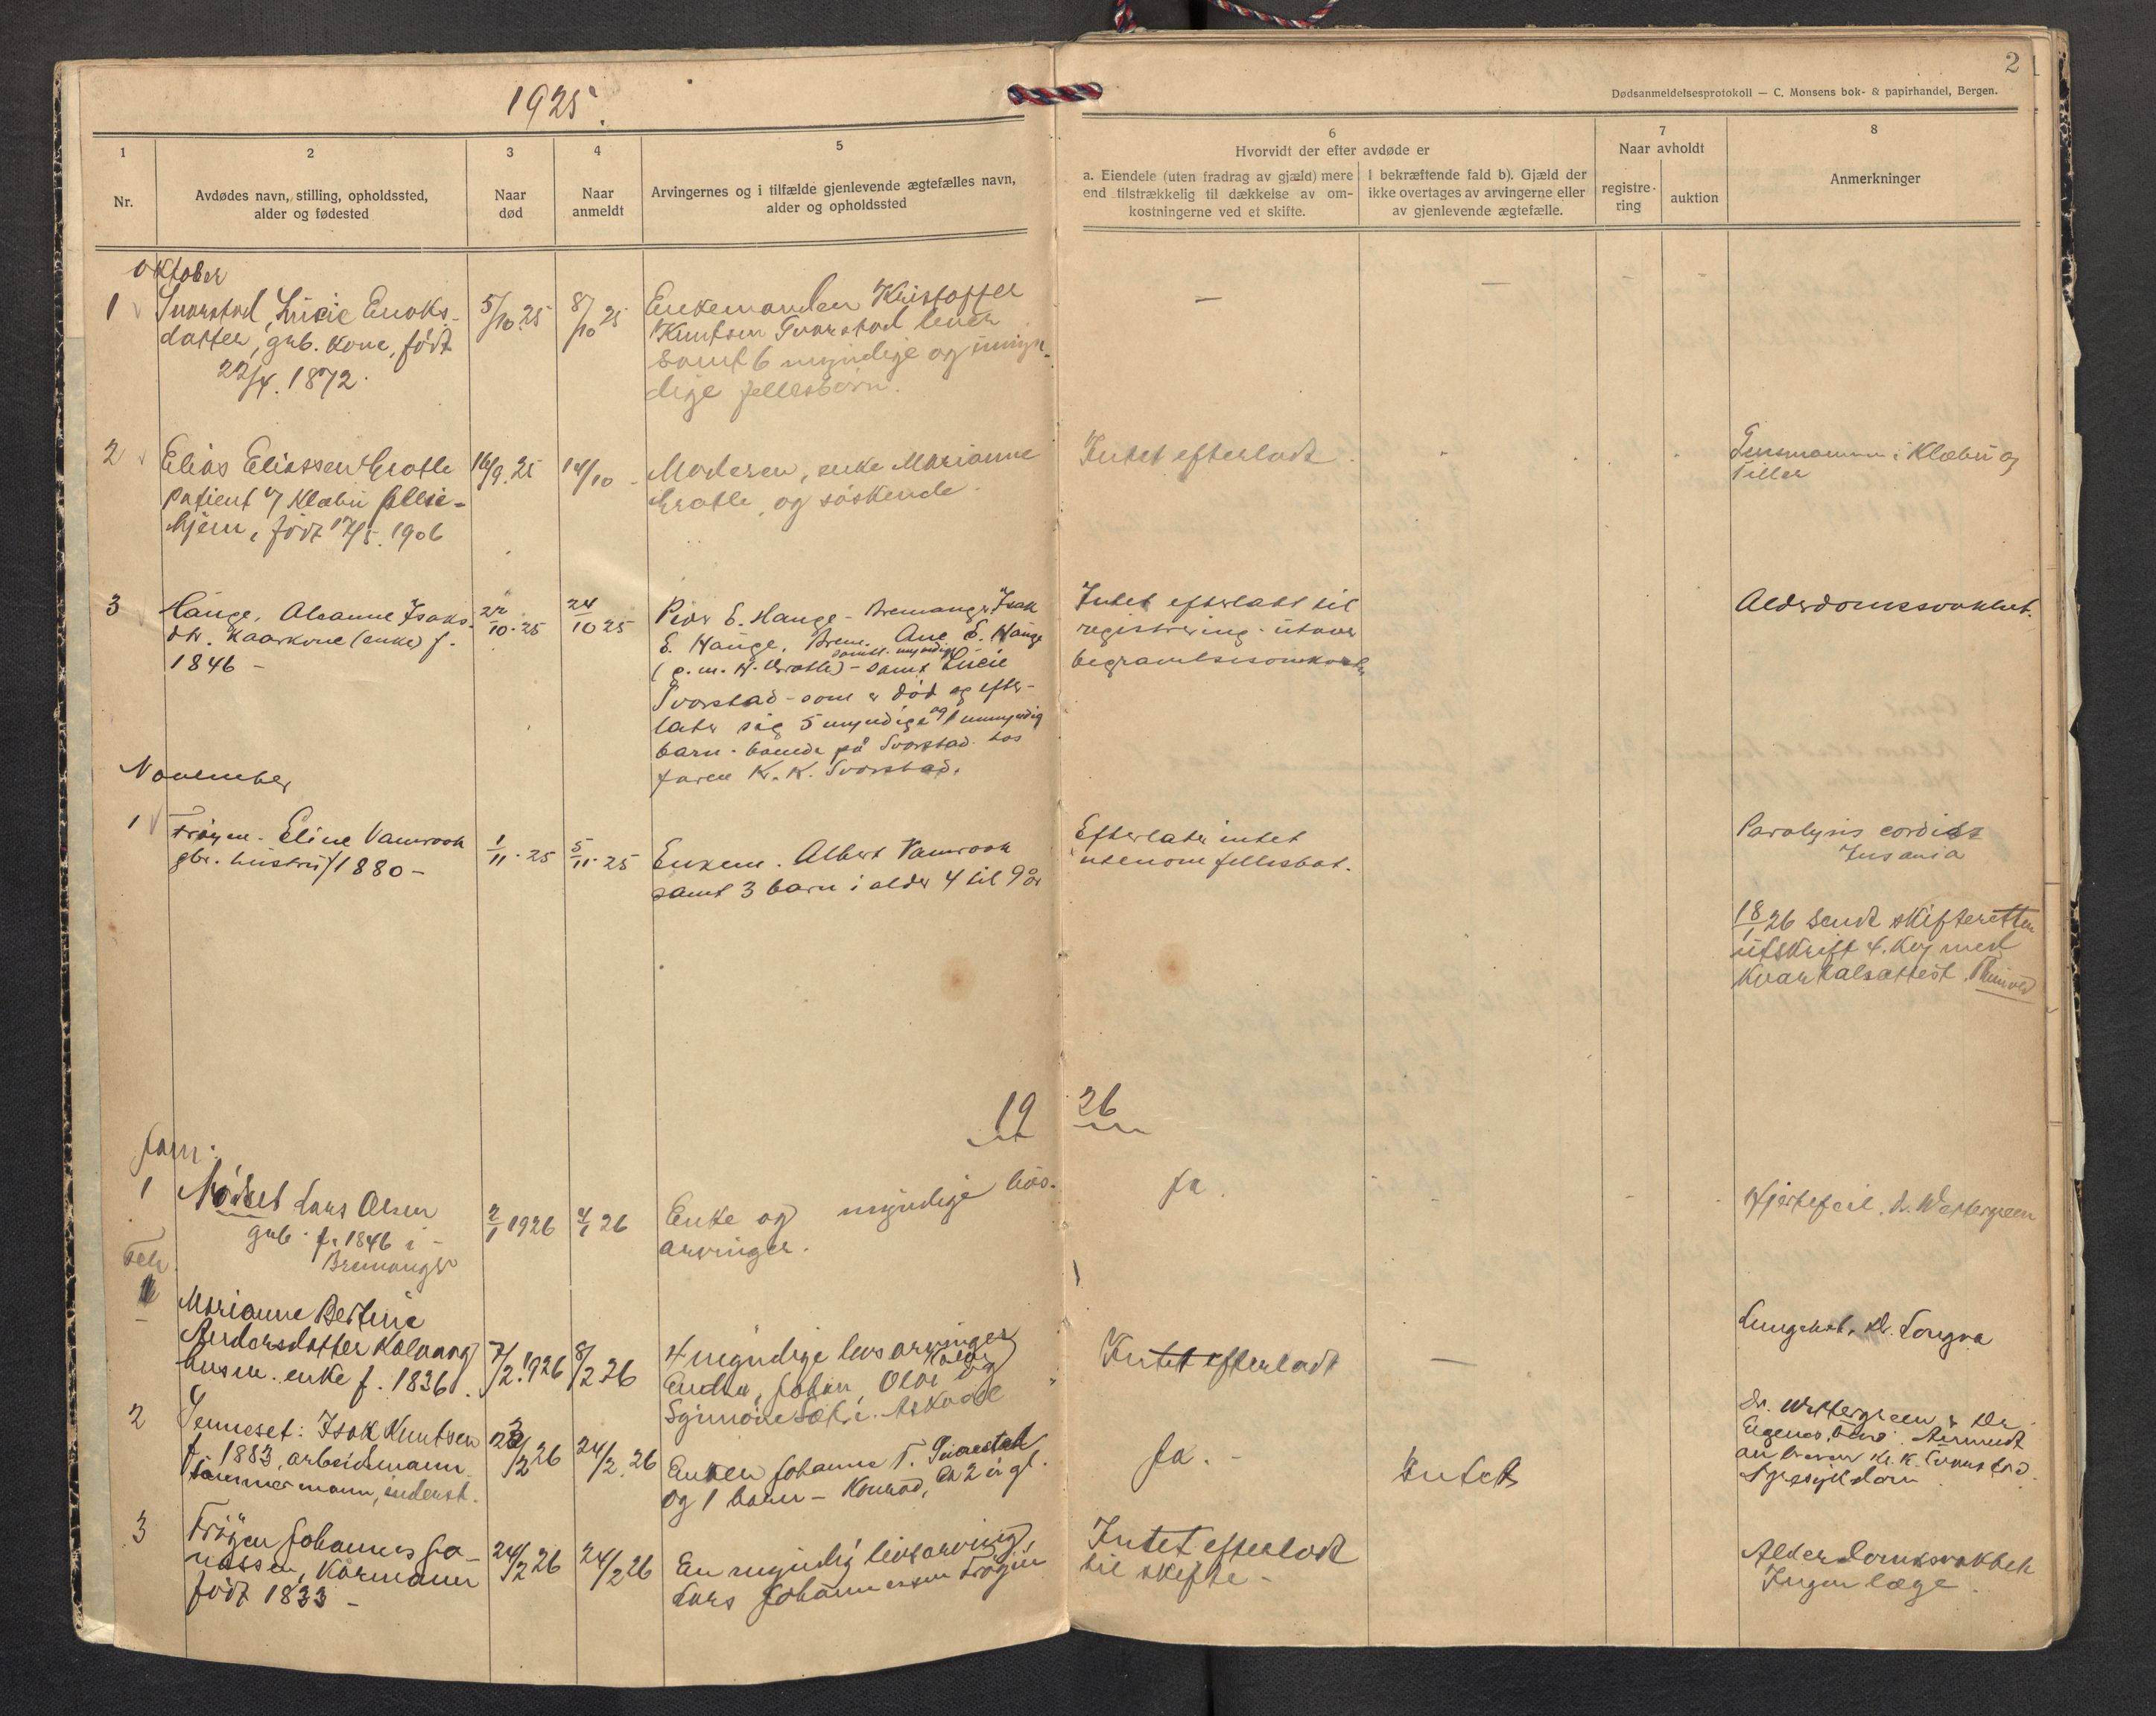 1925.
2
Dødsanmeldelsesprotokoll — C. Monsens bok- & papirhandel, Bergen.
1
2
3
4
5
6
7
8
Nr.
Avdødes navn, stilling, opholdssted,
alder og fødested
Naar
død
Naar
anmeldt
Arvingernes og i tilfælde gjenlevende ægtefælles navn,
alder og opholdssted
Hvorvidt der efter avdøde er
a. Eiendele (uten fradrag av gjæld) mere
end tilstrækkelig til dækkelse av om-
kostningerne ved et skifte.
I bekræftende fald b). Gjæld der
ikke overtages av arvingerne eller
av gjenlevende ægtefælle.
Naar avholdt
registre-
ring
auktion
Anmerkninger
Oktober
1
Svarstad, Lucie Enoks-
datter, grb. kone, født
22/4. 1872.
5/10.25
8/10 25
Enkemanden Kristoffer
Knutsen Svarstad lever
samt 6 myndige og umyn-
dige fellesbørn.
—
—
2
Elias Eliassen Grotle
patient v/ Klæbu pleie-
hjem, født 17/5. 1906
16/9.25
14/10 -
Moderen, enke Marianne
Grotle, og søskende.
Intet efterladt
Lensmannen i Klæbu og
Tiller
3
Hauge, Oleanne Isaks.
dtr. Kaarkone (enke) f.
1846 -
22/10.25
24/10 25
Peder E. Hauge - Bremanger, Isak
E. Hauge, Brem. Ane E. Hauge
(g. m. H. Grotle) - samt Lucie
samtl. myndige
Svorstad - som er død og efter-
later sig 5 myndige og 1 umyndig
barn - boende på Svorstad hos
faren K. K. Svorstad.
Intet efterladt til
registrering utover
begravelsesomkostn.
Alderdomssvakhet.
November
1
Frøyen. Eline Vamraak
gbr. hustru f 1880 -
1/11.25
5/11.25
Enkem. Albert Vamraak
samt 3 barn i alder 4 til 9 år
Efterlater intet
utenom fellesbot.
Paralysis cordis
Insania
18/1 26 sendt skifteretten
utskrift 4. kv med
kvartalsattest.
1926
Jan.
1
Nødset Lars Olsen
grb. f. 1846 i -
Bremanger
2/1 1926
4/1 26
Enke og myndige livs-
arvinger.
Ja.
Hjertefeil. dr. Wettergreen
Feb.
1
Marianne Bertine
Andersdatter Kalvaag
husm. enke f. 1836.
7/2.1926
8/2 26
4 myndige livsarvinger
Endre, Johan, Olai og
Intet efterladt
—
Lungebet. dr. Longva
2
Senneset: Isak Knutsen
f. 1883, arbeidsmann
tømmermann, inderst.
23/2 26
24/2.26
Enken Johanne T. Svarstad
og 1 barn - Konrad, ca 2 år gl.
Ja. -
Intet
Dr. Wettergreen & Dr.
av broren Kr. K. Svarstad.
3
Frøyen Johannes Jo-
nassen, Kårmann
født 1833 -
24/2 26
24/2 26
En myndig livsarving,
Lars Johannessen Frøyen
Intet efterladt
til skifte -
Alderdomssvakhet
Ingen læge.